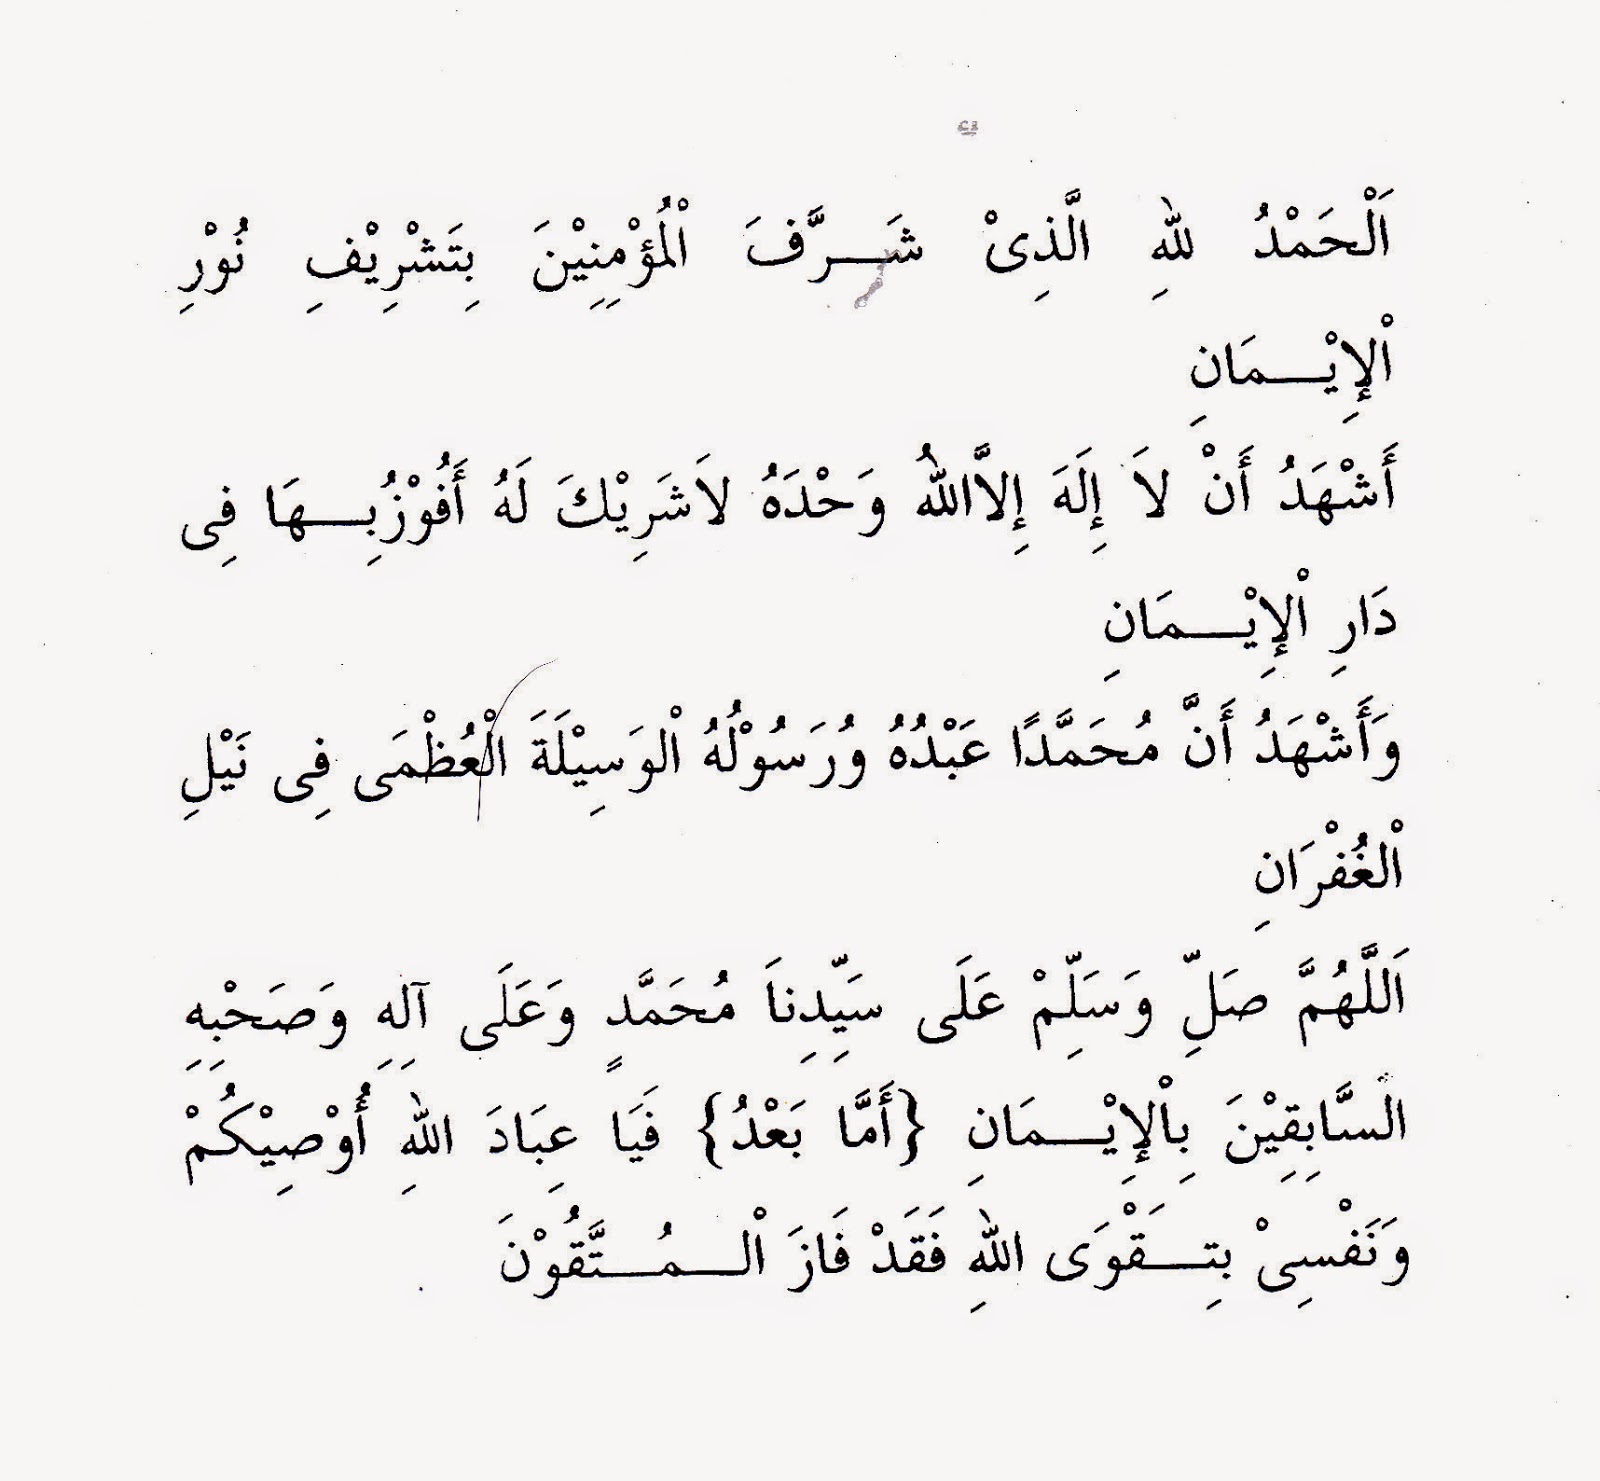 اَلْحَمْدُ للهِ الَّذِىْ شَـــرَّفَ اْلمُؤْمِنِيْنَ بِتَشْرِيْفِ نُوْرِ
اْلإِيْـــمَانِ
أَشْهَدُ أَنْ لاَ إِلَهَ إِلاَّاللهُ وَحْدَهُ لاَشَرِيْكَ لَهُ أَفُوْزُبِـــهَا فِى
دَارِ اْلإِيْـــمَانِ
وَأَشْهَدُ أَنَّ مُحَمَّدًا عَبْدُهُ وُرَسُوْلُهُ اْلوَسِيْلَةَ الْعُظْمَى فِى نَيْلِ
اْلغُفْرَانِ
اَللَّهُمَّ صَلِّ وَسَلِّمْ عَلَى سَيِّدِنِاَ مُحَمَّدٍ وَعَلَى آلِهِ وَصَحْبِهِ
السَّابِقِيْنَ بِاْلإِيْـــمَانِ {أَمَّا بَعْدُ} فَيَا عِبَادَ اللهِ أُوْصِيْكُمْ
وَنَفْسِىْ بِتـــَقْوَى اللهِ فَقَدْ فَازَ اْلـــمُـــتَّقُوْنَ